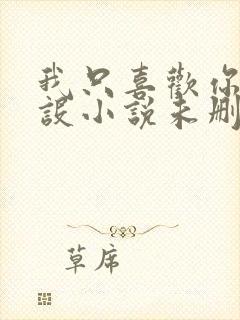 我只喜歡你
設小說未刪
草席